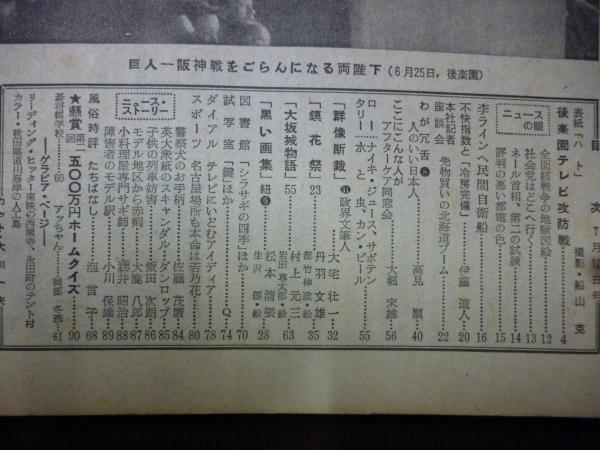 巨人―阪神戦をごらんになる両陛下(6月25日,後楽園)
目次 7月12日号
表紙「ハト」 撮影・船山 克
後楽園テレビ攻防戦 4
ニュースの眼
全面核戦争の地獄図絵 12
社会党はどこへ行く 13
ネール首相、第二の試練 14
評判の悪い都電の色 15
李ラインへ民間自衛船 16
不快指数と「冷房完備」 伊藤 道人 20
本社記者座談会 先物買いの北海道ブーム 22
わが冗舌⑧ 人のいい日本人 高見 順 40
ここにこんな人が アフターケア同窓会 大郷 来雄 56
ロータリー ナイキ・ジュース、サボテン、水と虫、カン・ビール 55
「群像断裁」㉛ 政界文筆人 大宅 壮一 32
「鏡花祭」 35 丹羽 文雄 都竹 伸政・絵
「大坂城物語」 55 村上 元三 岩田専太郎・絵 63
「黒い画集」紐⑤ 松本 清張 生沢 朗・絵 28
図書館 「シラサギの四季」ほか 70
試写室 「鍵」ほか Q 74
ダイアル テレビにいどむアイディア 78
スポーツ 名古屋場所も本命は若乃花 80
ニュース・ストーリー
警察犬のお手柄 佐藤 茂 84
英大衆紙のスキャンダル・ダンロップ 85
子供の列車妨害 飯田 次朗 86
モデル地区から赤痢 大葉 八郎 87
小料理屋専門サギ師 浅井 昭治 88
障害者のモデル駅 小川 保雄 89
風俗時評 たちばなし 泡 言子 68
★懸賞 第二回 五〇〇万円ホームクイズ 90
碁将棋学校 60 アッちゃん 岡部 冬彦 61
―グラビア・ページ―
リーディング・ヒッター東映の西園寺、永田町のテント村
カラー・秋田県道川海岸の人工島